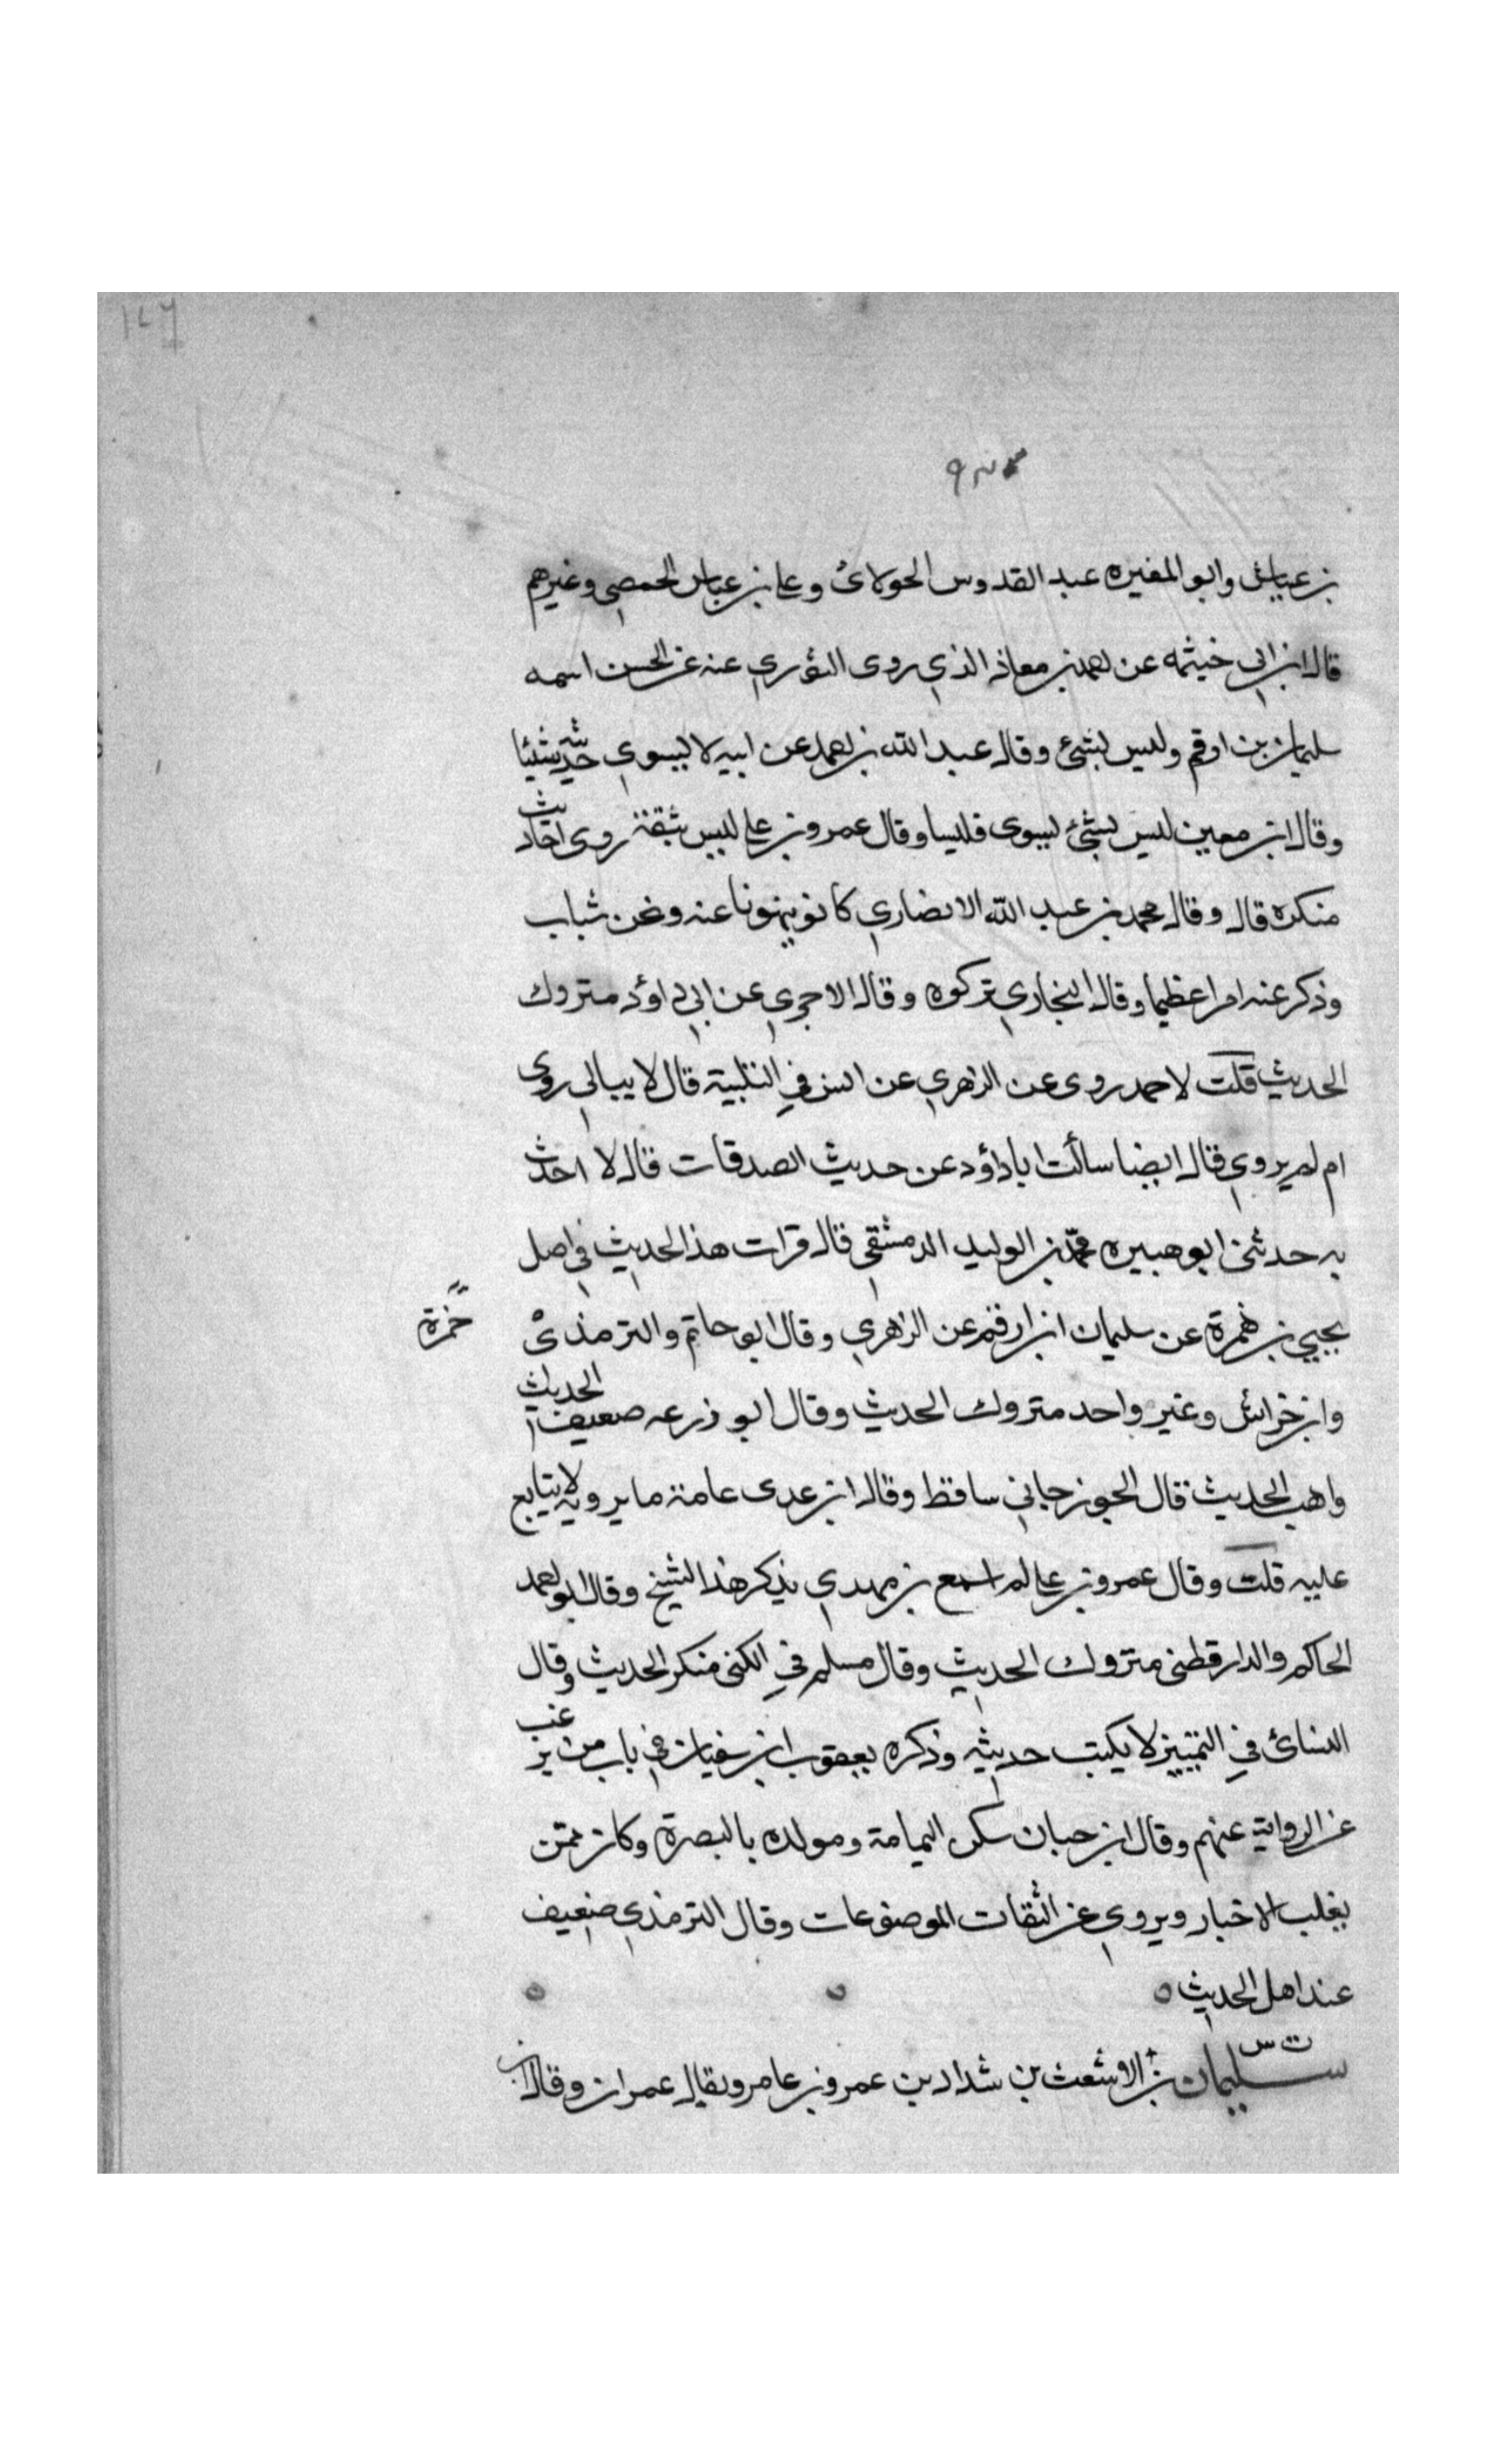 بن عياش وابو المغيره عبد القدوس الحولائ وعلى بن عباس الحمصي وغيرهم
قال ابن ابي خيثمه عن احمد بن معاذ الذي روى الثوري عنه عن الحسن اسمه
سليمان بن ارقم وليس بشئ وقال عبد الله بن احمد عن ابيه لا ليسوي حديثه شيئا
وقال ابن معين ليس بشئ ليسوى فليسا وقال عمرو بن علي ليس بثقة روى احاديث
منكره قال وقال محمد بن عبد الله الانصاري كانو ينهونا عنه ونحن شباب
وذكر عنه امرا عظيما وقال البخاري تركوه وقال الاجري عن ابي داؤد متروك
الحديث قلت لاحمد روى عن الزهري عن انس في التلبية قال لا يبالي روى
ام لم يروي قال ايضا سألت ابا داؤد عن حديث الصدقات قال لا احدث
به حدثني ابو هبيره محمد بن الوليد الدمشقي قال قرات هذا الحديث في اصل
يحيي بن ضمرة عن سليمان ابن ارقم عن الزهري وقال ابو حاتم والترمذي
حمزة
وابن خراش وغير واحد متروك الحديث وقال ابو ذرعه ضعيف الحديث
واهب الحديث قال الجوزجاني ساقط وقال ابن عدى عامة ما يرويه لا يتابع
عليه قلت وقال عمرو بن علي لم اسمع بن مهدي يذكر هذا الشيخ وقال ابو احمد
الحاكم والدارقطني متروك الحديث وقال مسلم في الكنى منكر الحديث وقال
النسائ في التمييز لا يكتب حديثه وذكره يعقوب ابن سفيان في باب من يرغب
عن الرواية عنهم وقال ابن حبان سكن اليمامة ومولده بالبصرة وكان ممن
يغلب الاخبار ويروي عن الثقات الموضوعات وقال الترمذي ضعيف
عند اهل الحديث
ت س
سليمان بن الاشعث بن شداد بن عمرو بن عامر ويقال عمران وقال ابن